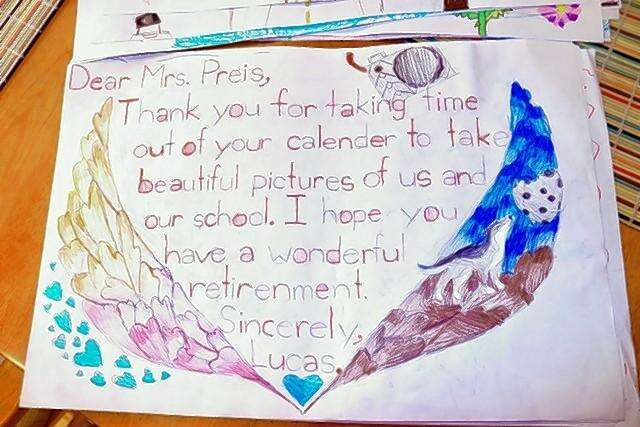 Dear Mrs. Preis,
Thank you for taking time
out of your calender to take
beautiful pictures of us and
our school. I hope you
have a wonderful
retirenment.
Sincerely,
Lucas.